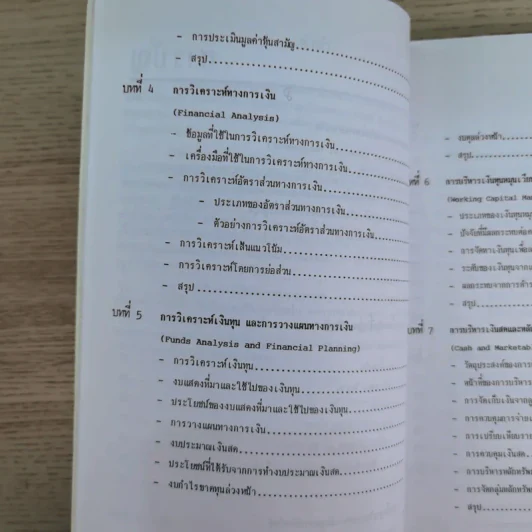 - การประเมินมูลค่าหุ้นสามัญ
- สรุป
บทที่ 4 การวิเคราะห์ทางการเงิน
(Financial Analysis)
- ข้อมูลที่ใช้ในการวิเคราะห์ทางการเงิน
- เครื่องมือที่ใช้ในการวิเคราะห์ทางการเงิน
- การวิเคราะห์อัตราส่วนทางการเงิน
- ประเภทของอัตราส่วนทางการเงิน
- ตัวอย่างการวิเคราะห์อัตราส่วนทางการเงิน
- การวิเคราะห์เส้นแนวโน้ม
- การวิเคราะห์โดยการย่อส่วน
- สรุป
บทที่ 5 การวิเคราะห์เงินทุน และการวางแผนทางการเงิน
(Funds Analysis and Financial Planning)
- การวิเคราะห์เงินทุน
- งบแสดงที่มาและใช้ไปของเงินทุน
- ประโยชน์ของงบแสดงที่มาและใช้ไปของเงินทุน
- การวางแผนทางการเงิน
- งบประมาณเงินสด
- ประโยชน์ที่ได้รับจากการทำงบประมาณเงินสด
- งบกำไรขาดทุนล่วงหน้า
- งบดุลล่วงหน้า
- สรุป
ที่ 6 การบริหารเงินทุนหมุนเวียน
(Working Capital Ma
- ประเภทของเงินทุนหมุ
- ปัจจัยที่มีผลกระทบต่อ
- การจัดหาเงินทุนเพื่อ
- ระดับของเงินทุน
- ผลกระทบจากการดำร
- สรุป
บทที่ 7 การบริหารเงินสดและหลัก
(Cash and Marketab
- วัตถุประสงค์ของการ
- หน้าที่ของการบริหาร
- การจัดเก็บเงินจากลู
- การควบคุมการจ่ายเ
- การเปรียบเทียบราย
- การควบคุมเงินสด
- การบริหารหลักทรัพ
- การจัดกลุ่มหลักทรัพ